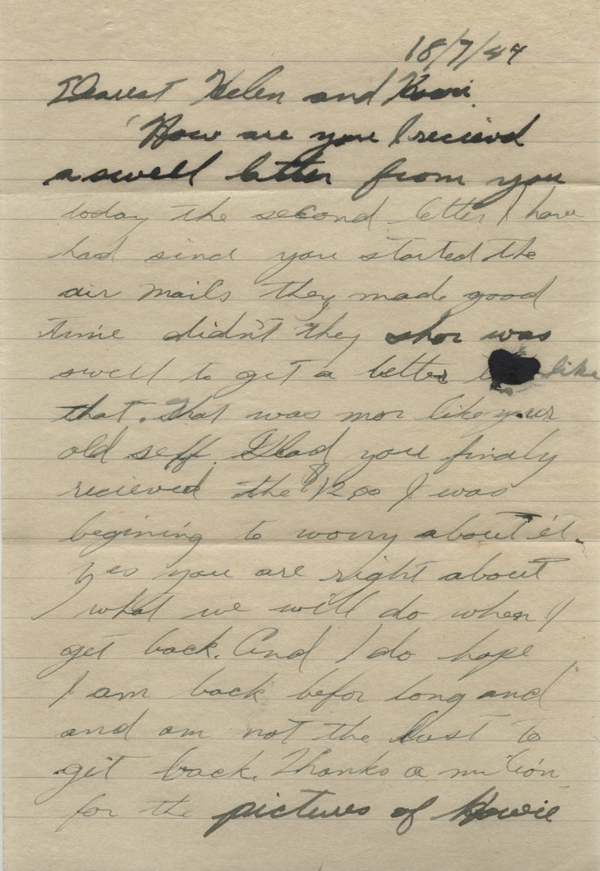 18/7/44
Dearest Helen and Howi
How are you I recievd
a swell letter from you
today the second letter I have
had since you started the
air mails they made good
time didn't they shor was
swell to get a better like
that. That was mor like your
old self. Glad you finaly
recieved the $1200 I was
begining to worry about it.
yes you are right about
what we will do when I
get back. And I do hope
I am back befor long and
and am not the last to
get back. Thanks a million
for the pictures of Howie